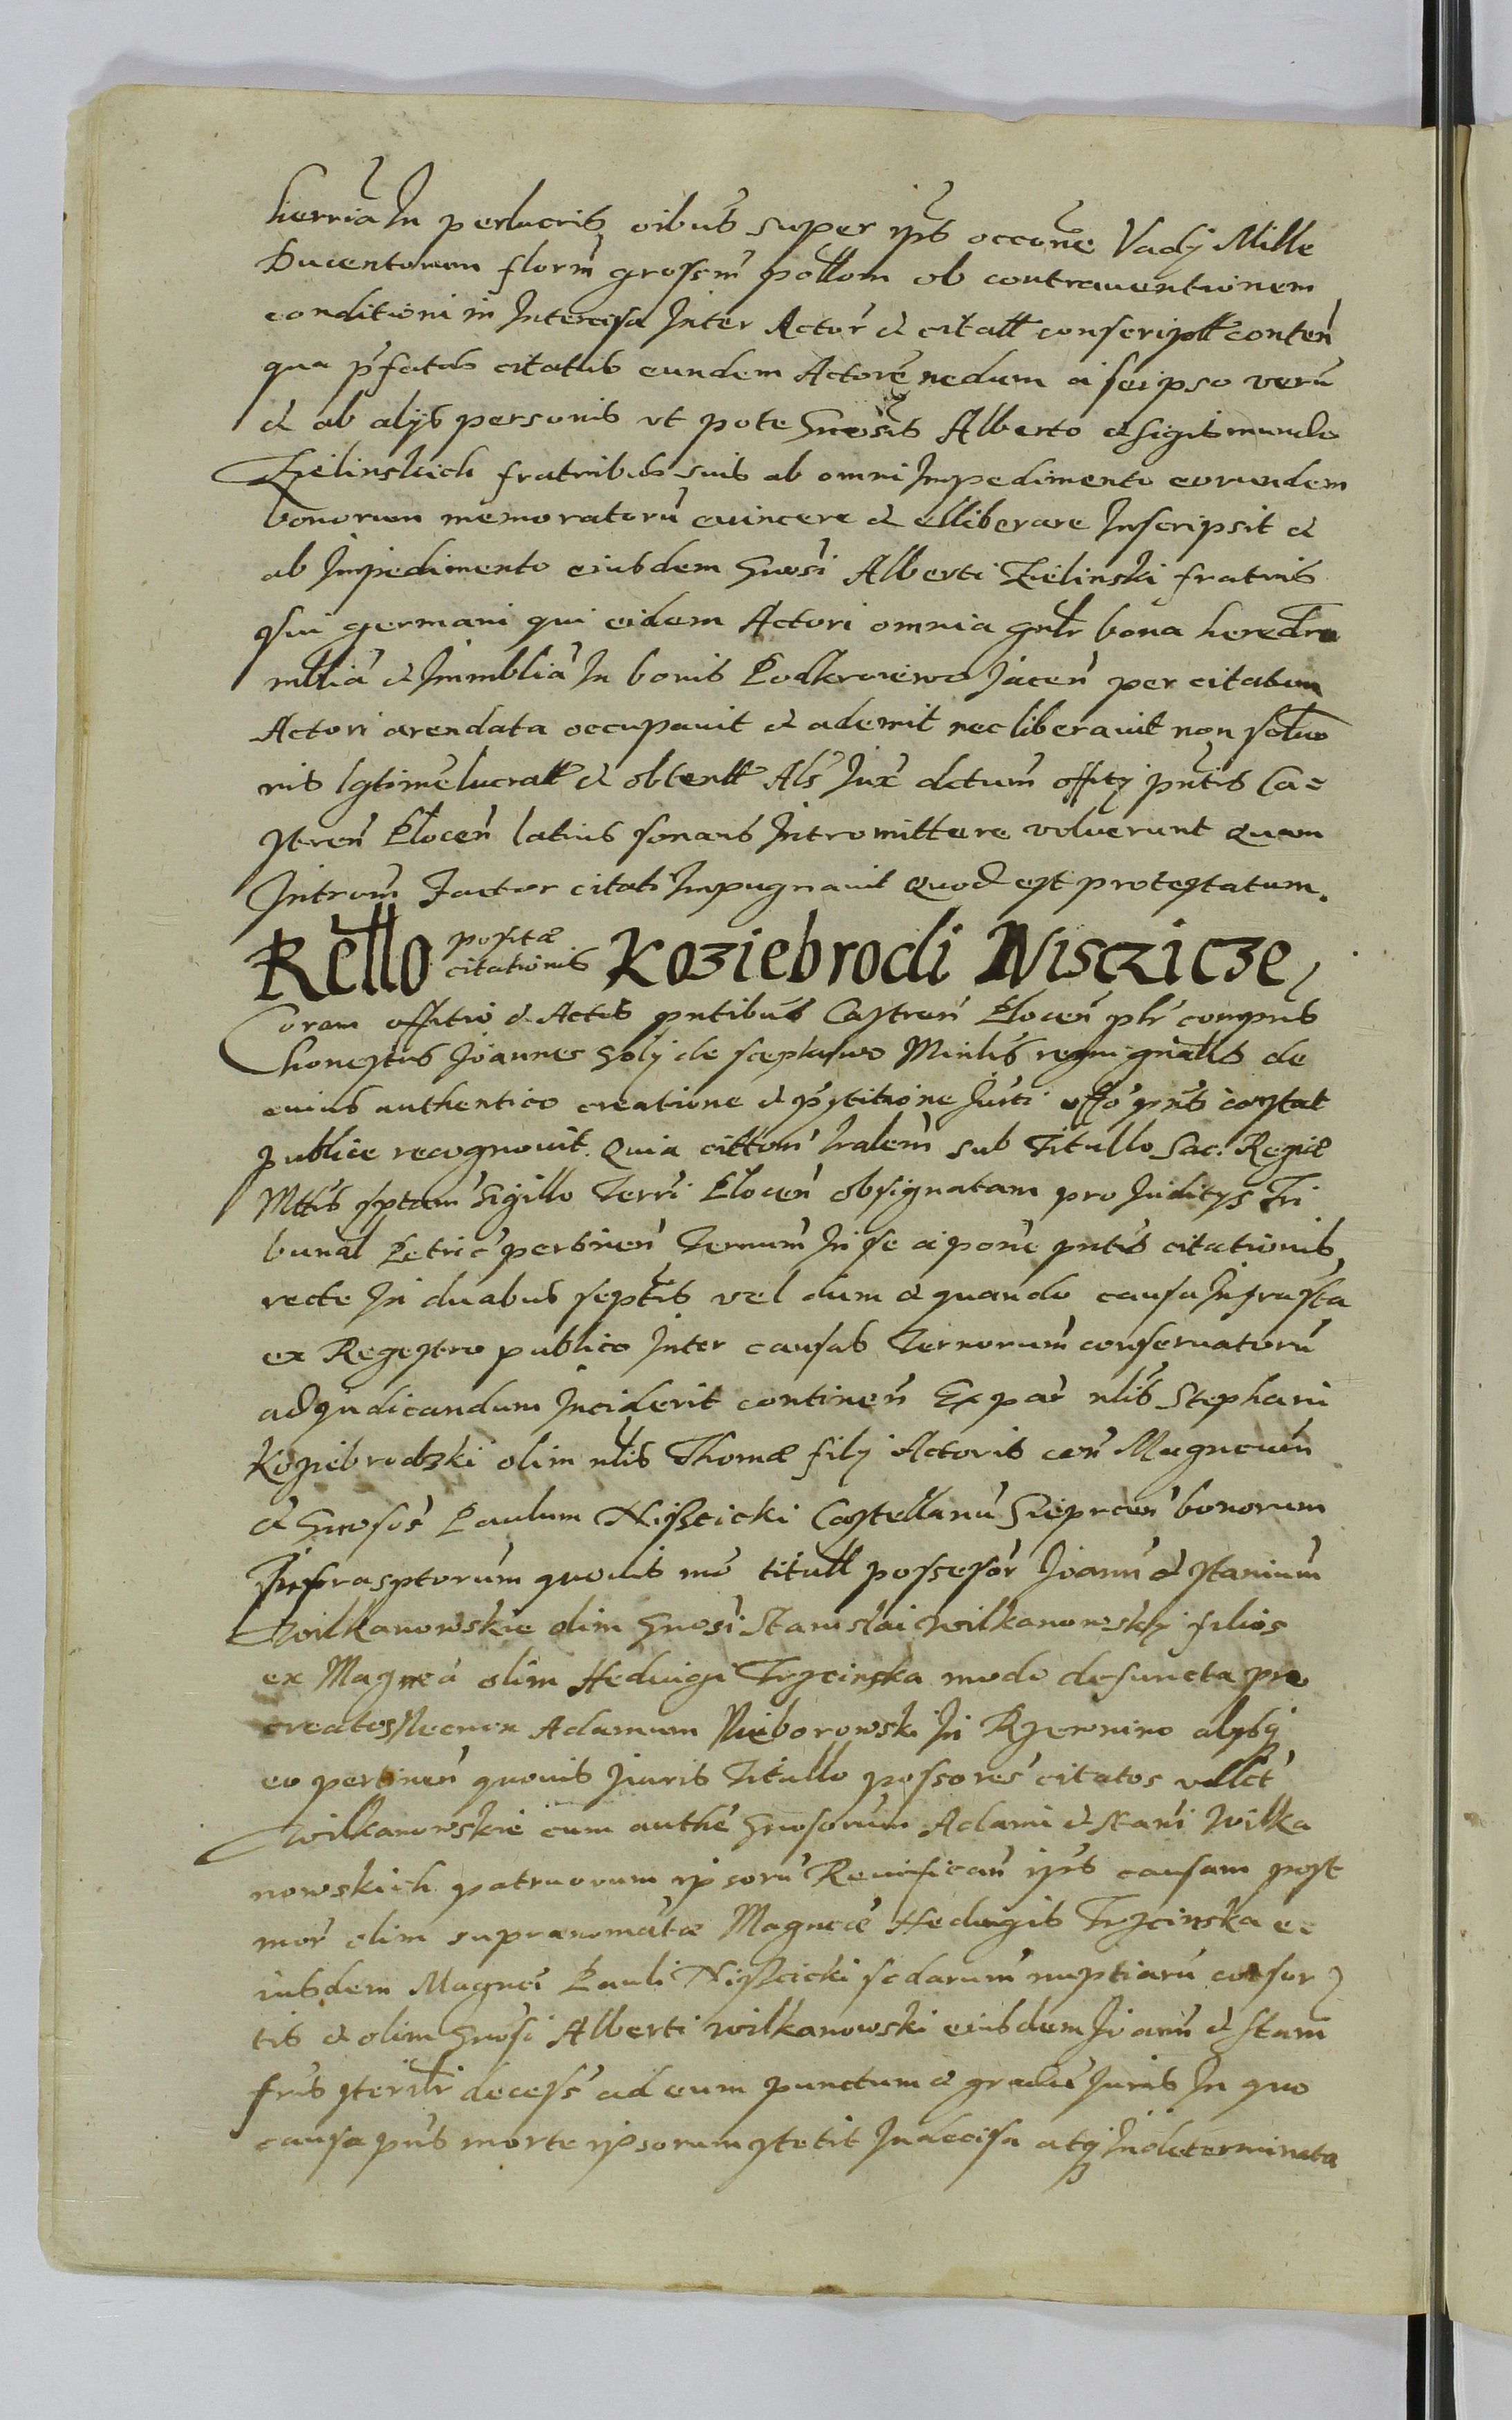 herriā In perlucris oibūs super ipīs occōne Vadÿ Mille
Ducentorum florm̄ grossm̄ pollon ob contrauentionem
conditioni in Intercisa Inter Actor̄ & citatt conscriptt conten̄
qua p̄fatus citatus eundem Actorē nedum a seipso verū
& ab alÿs personis vt pote Gnōsis Alberto & Sigismundo
Zielinskich fratribus suis ab omni Impedimento eorundem
bonorum memoratorū euincere & elliberare Inscripsit &
ab Impedimento eiusdem Gnosi Alberti Zielinski fratris
sui germani qui eidem Actori omnia gnlr bona heredtra
mblia & Immblia In bonis Podkraiewo Jacen̄ per citatum
Actori arendata occupauit & ademit nec liberauit non
ris lgtime lucratt & obtentt Als Jux dctum offity pntis Ca=
stren̄ Plocen̄ latius sonans Intromittere voluerunt quam
Introm̄ Factor citati Impugnauit quod est protestatum.
Rello positæ citationis Koziebrodi Nisczicze
Coram offitio & Actis pntibus Castren̄ Plocen̄ plr compns
honestus Joannes Goly de Minlis regni gnalis de
cuius authentico creatione & pstitione Jurti offo pns constat
publice recognouit. Quia cittom̄ lralem̄ sub Titullo Sac. Regiæ
Mttis sptam̄ Sigillo Terri Plocen̄ obsignatam pro Juditÿs Tri
bunal Petric pertinen̄ Termum̄ In se a pone pntis citationis
recte In duabus septis vel dum & quando causa Infrascta
ex Regestro publico Inter causas Termorum̄ conseruatorū
adiudicandum Inciderit continen̄ Ex par nlis Stephani
Koziebrodzki olim nlis Thomæ filÿ Actoris con̄ Magncum̄
& Gnosos Paulum Niszcicki Castellanū Sieprcen̄ bonorum
Infrasptorum̄ quouis mō titull possesor̄ Joann̄ & Stanium̄
Wilkanowskie olim Gnosi Stanislai Wilkanowsky filios
ex Magncā olim Heduigi Trzcinska modo defuncta pro
creatos Necnon Adamum Nieborowski In Rzewnino alÿsq
eo pertinen̄ quouis Juris Titullo possores citatos vllct
Wilkanowskie cum authē Gnosorum̄ Adami & Stani Wilka
nowskich patruorum ipsorū Reuifican̄ ips causam post
mor̄ olim supranomātæ Magncæ Heduigis Trzcinska e
iusdem Magnci Pauli Niszcicki scdarum̄ nuptiarū consor
tis & olim Gnosi Alberti Wilkanowski eiusdem Joann̄ & Stani
fris sterilr decess ad eum punctum & gradū Juris In quo
causa pns morte ipsorum stetit Indecisa atq Indeterminata